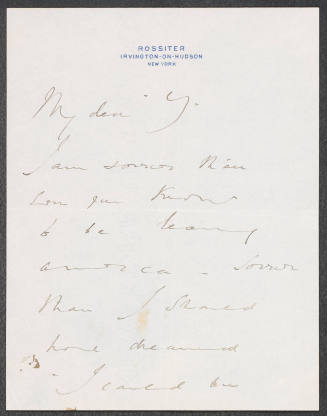 ROSSITER
IRVINGTON-ON-HUDSON
NEW YORK
My dear Y.
I am sorrier than
you know
to be leaving
America – sorrier
than I should
have dreamed
I could be